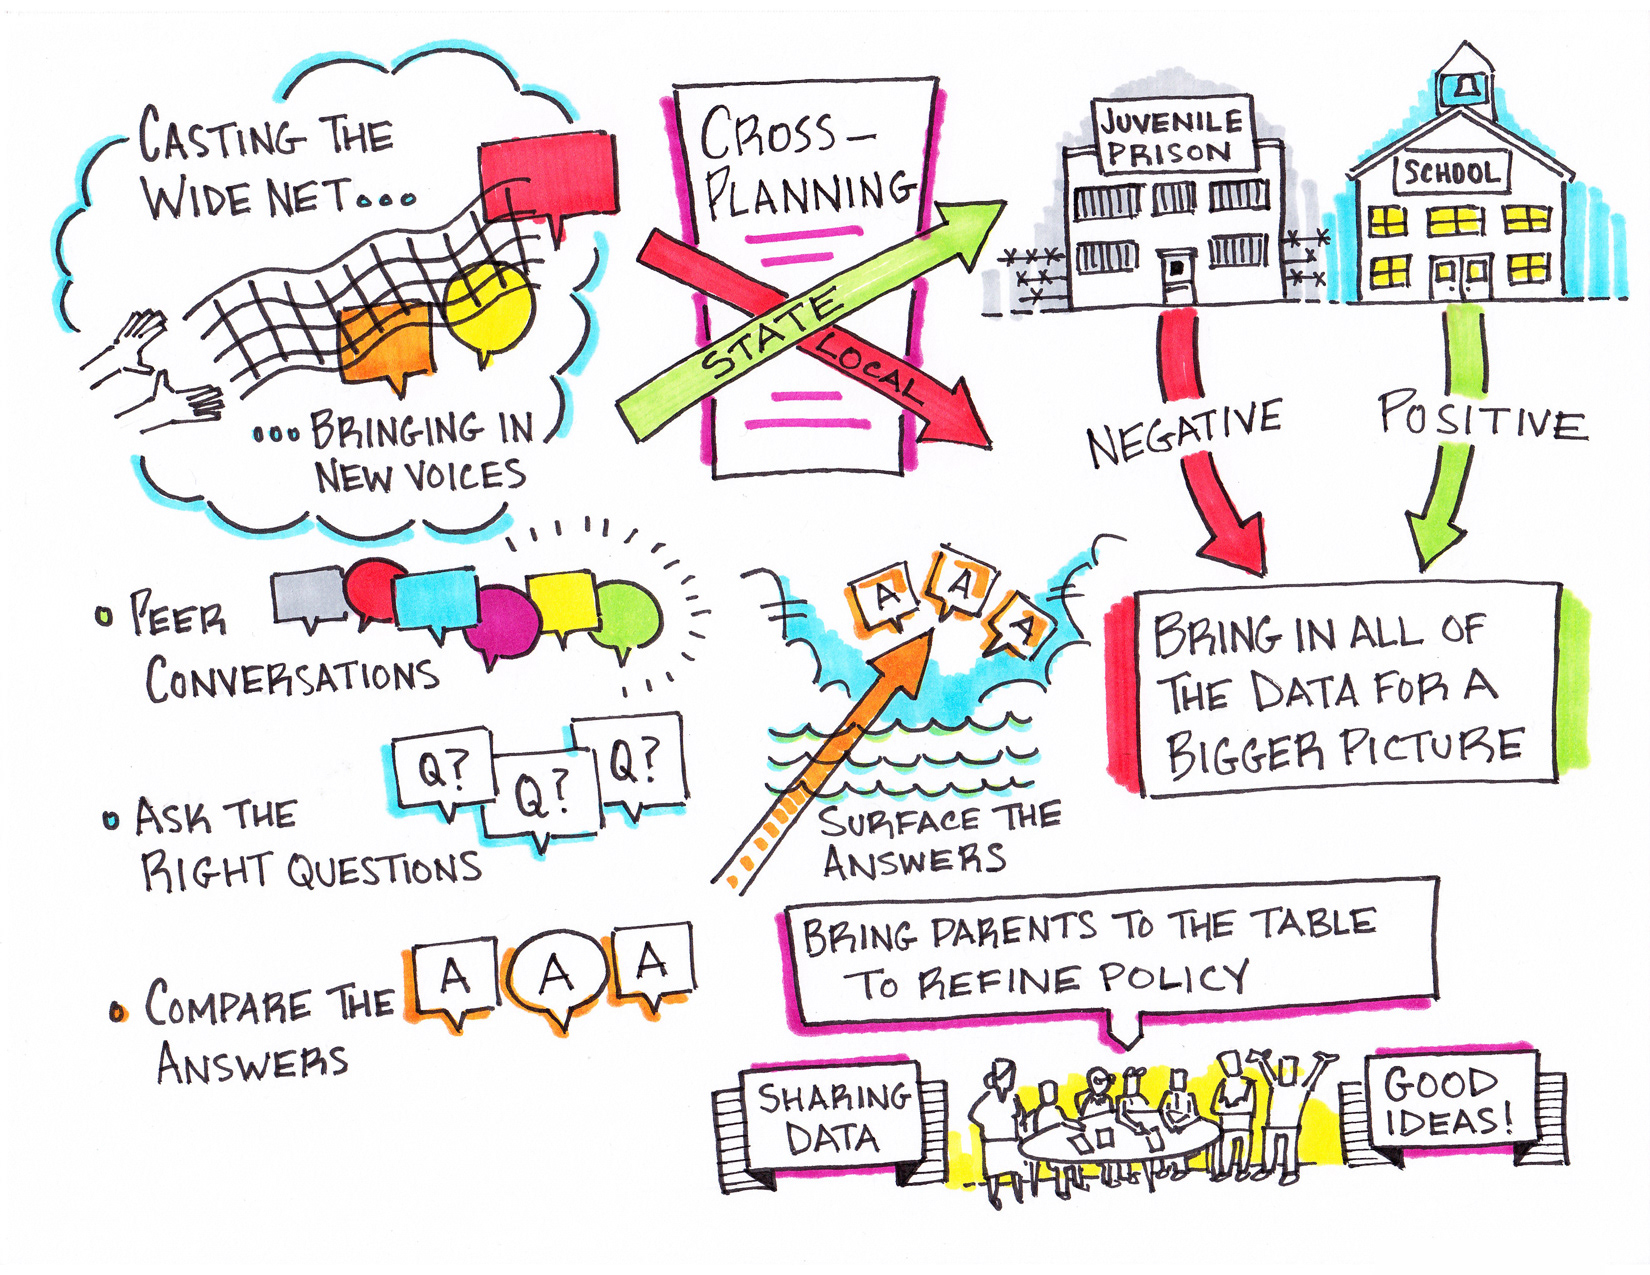 CASTING THE
WIDE NET...
...BRINGING IN
NEW VOICES
CROSS-
PLANNING
STATE
LOCAL
JUVENILE
PRISON
SCHOOL
NEGATIVE
POSITIVE
BRING IN ALL OF
THE DATA FOR A
BIGGER PICTURE
• PEER
CONVERSATIONS
• ASK THE
RIGHT QUESTIONS
Q? Q? Q?
• COMPARE THE
ANSWERS
A A A
A A A
SURFACE THE
ANSWERS
BRING PARENTS TO THE TABLE
TO REFINE POLICY
SHARING
DATA
GOOD
IDEAS!